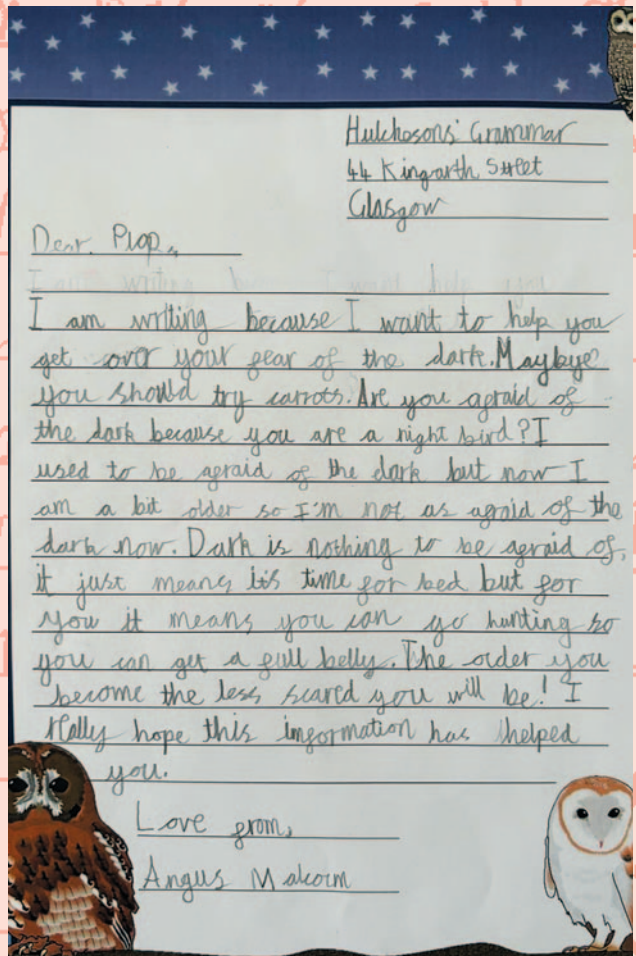 Hutchesons' Grammar
44 Kingarth Street
Glasgow
Dear. Plop,
I am writing because I want to help you
get over your fear of the dark. Maybye
you should try carrots. Are you afraid of
the dark because you are a night bird? I
used to be afraid of the dark but now I
am a bit older so I'm not as afraid of the
dark now. Dark is nothing to be afraid of,
it just means it's time for bed but for
you it means you can go hunting so
you can get a full belly. The older you
become the less scared you will be! I
really hope this information has helped
you.
Love from,
Angus Malcolm